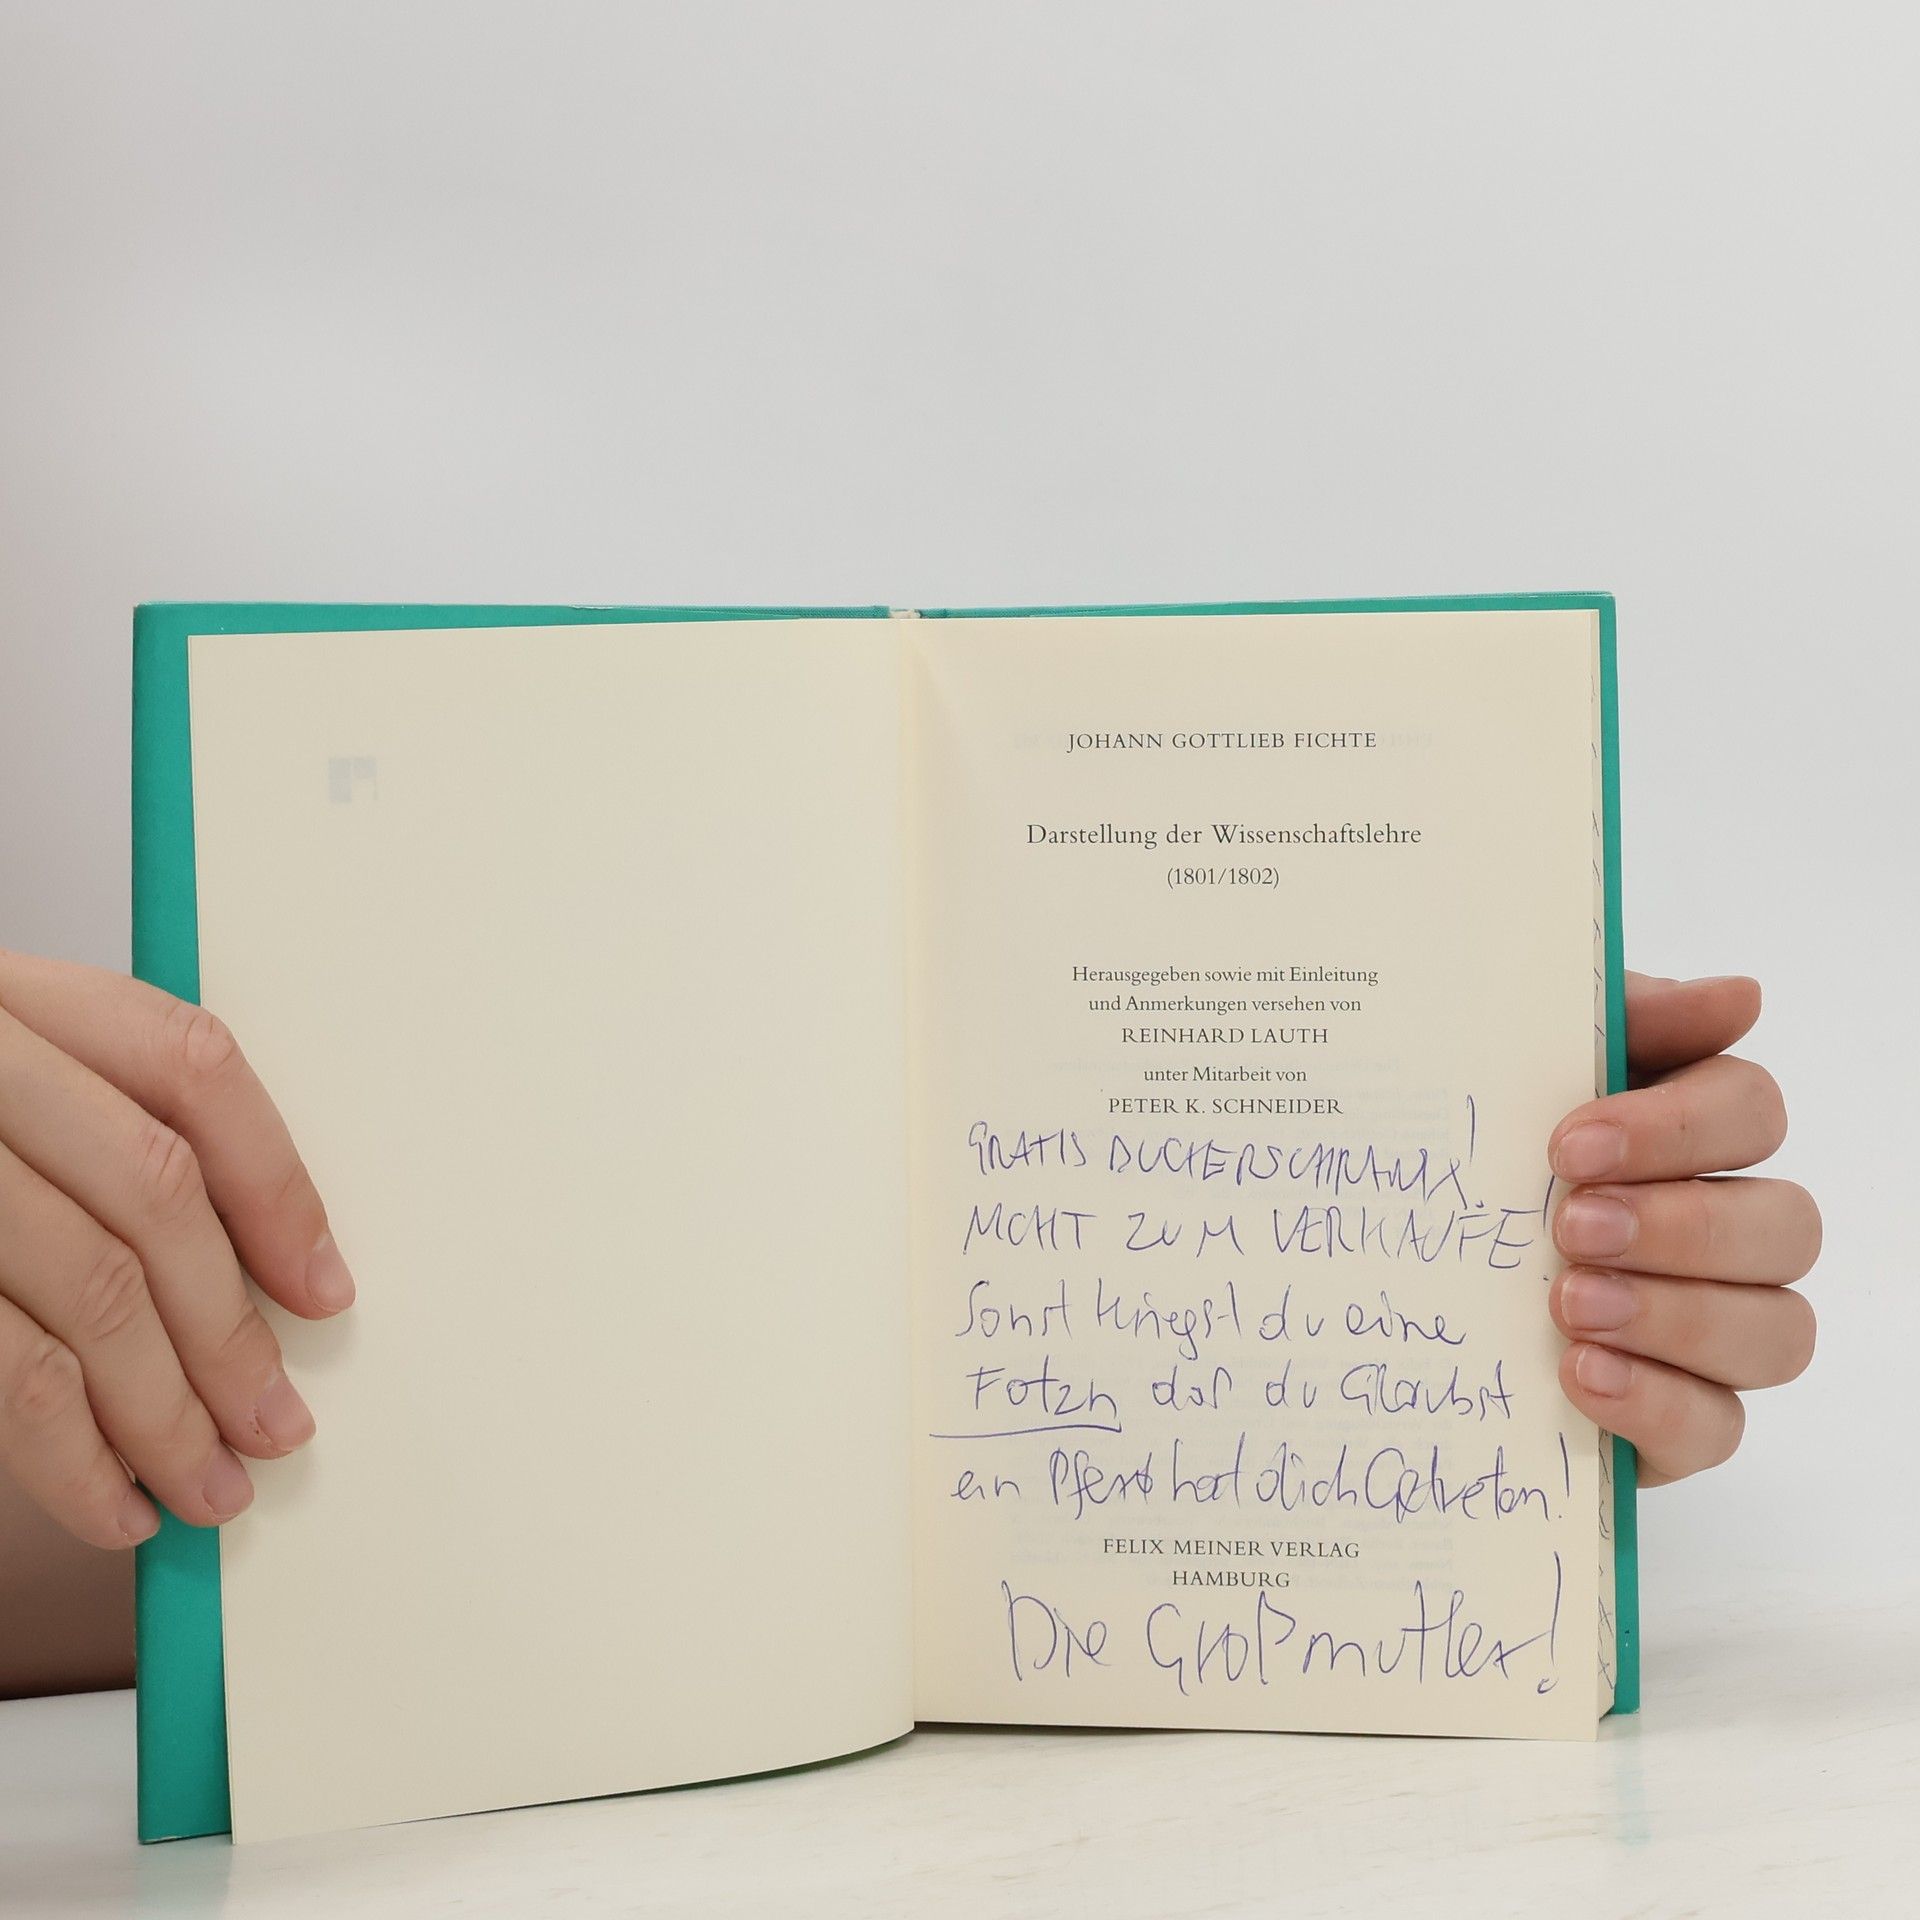 JOHANN GOTTLIEB FICHTE
Darstellung der Wissenschaftslehre
(1801/1802)
Herausgegeben sowie mit Einleitung
und Anmerkungen versehen von
REINHARD LAUTH
unter Mitarbeit von
PETER K. SCHNEIDER
GRATIS BÜCHERSCHRANK!
NICHT ZUM VERKAUFE!
Sonst kriegst du eine
Fotzn daß du Glaubst
ein Pferd hat dich Getreten!
FELIX MEINER VERLAG
HAMBURG
Die Großmutter!